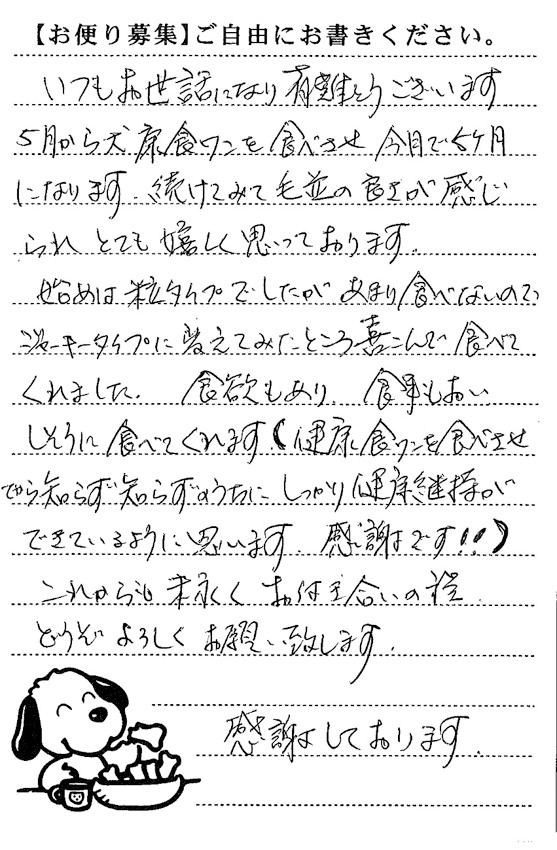 【お便り募集】ご自由にお書きください。
いつもお世話になり有難とうございます
5月から犬康食ワンを食べさせ今月で5ケ月
になります。続けてみて毛並の良さが感じ
られとても嬉しく思っております。
始めは粒タイプでしたがあまり食べないので
ジャーキータイプに変えてみたところ喜こんで食べて
くれました。食欲もあり食事もおい
しそうに食べてくれます(健康食ワンを食べさせ
てから知らず知らずのうちにしっかり健康維持が
できているように思います。感謝です!!)
これからも末永くお付き合いの程
どうぞよろしくお願い致します。
感謝しております。